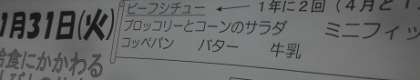 ビーフシチュー ← 1年に2回(4月と1
1月31日(火)
ブロッコリーとコーンのサラダ ミニフィッ
コッペパン バター 牛乳
給食にかかわる